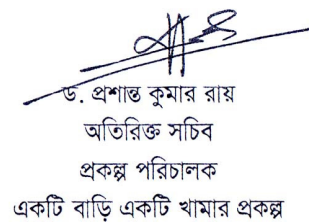 ড. প্রশান্ত কুমার রায়
অতিরিক্ত সচিব
প্রকল্প পরিচালক
একটি বাড়ি একটি খামার প্রকল্প